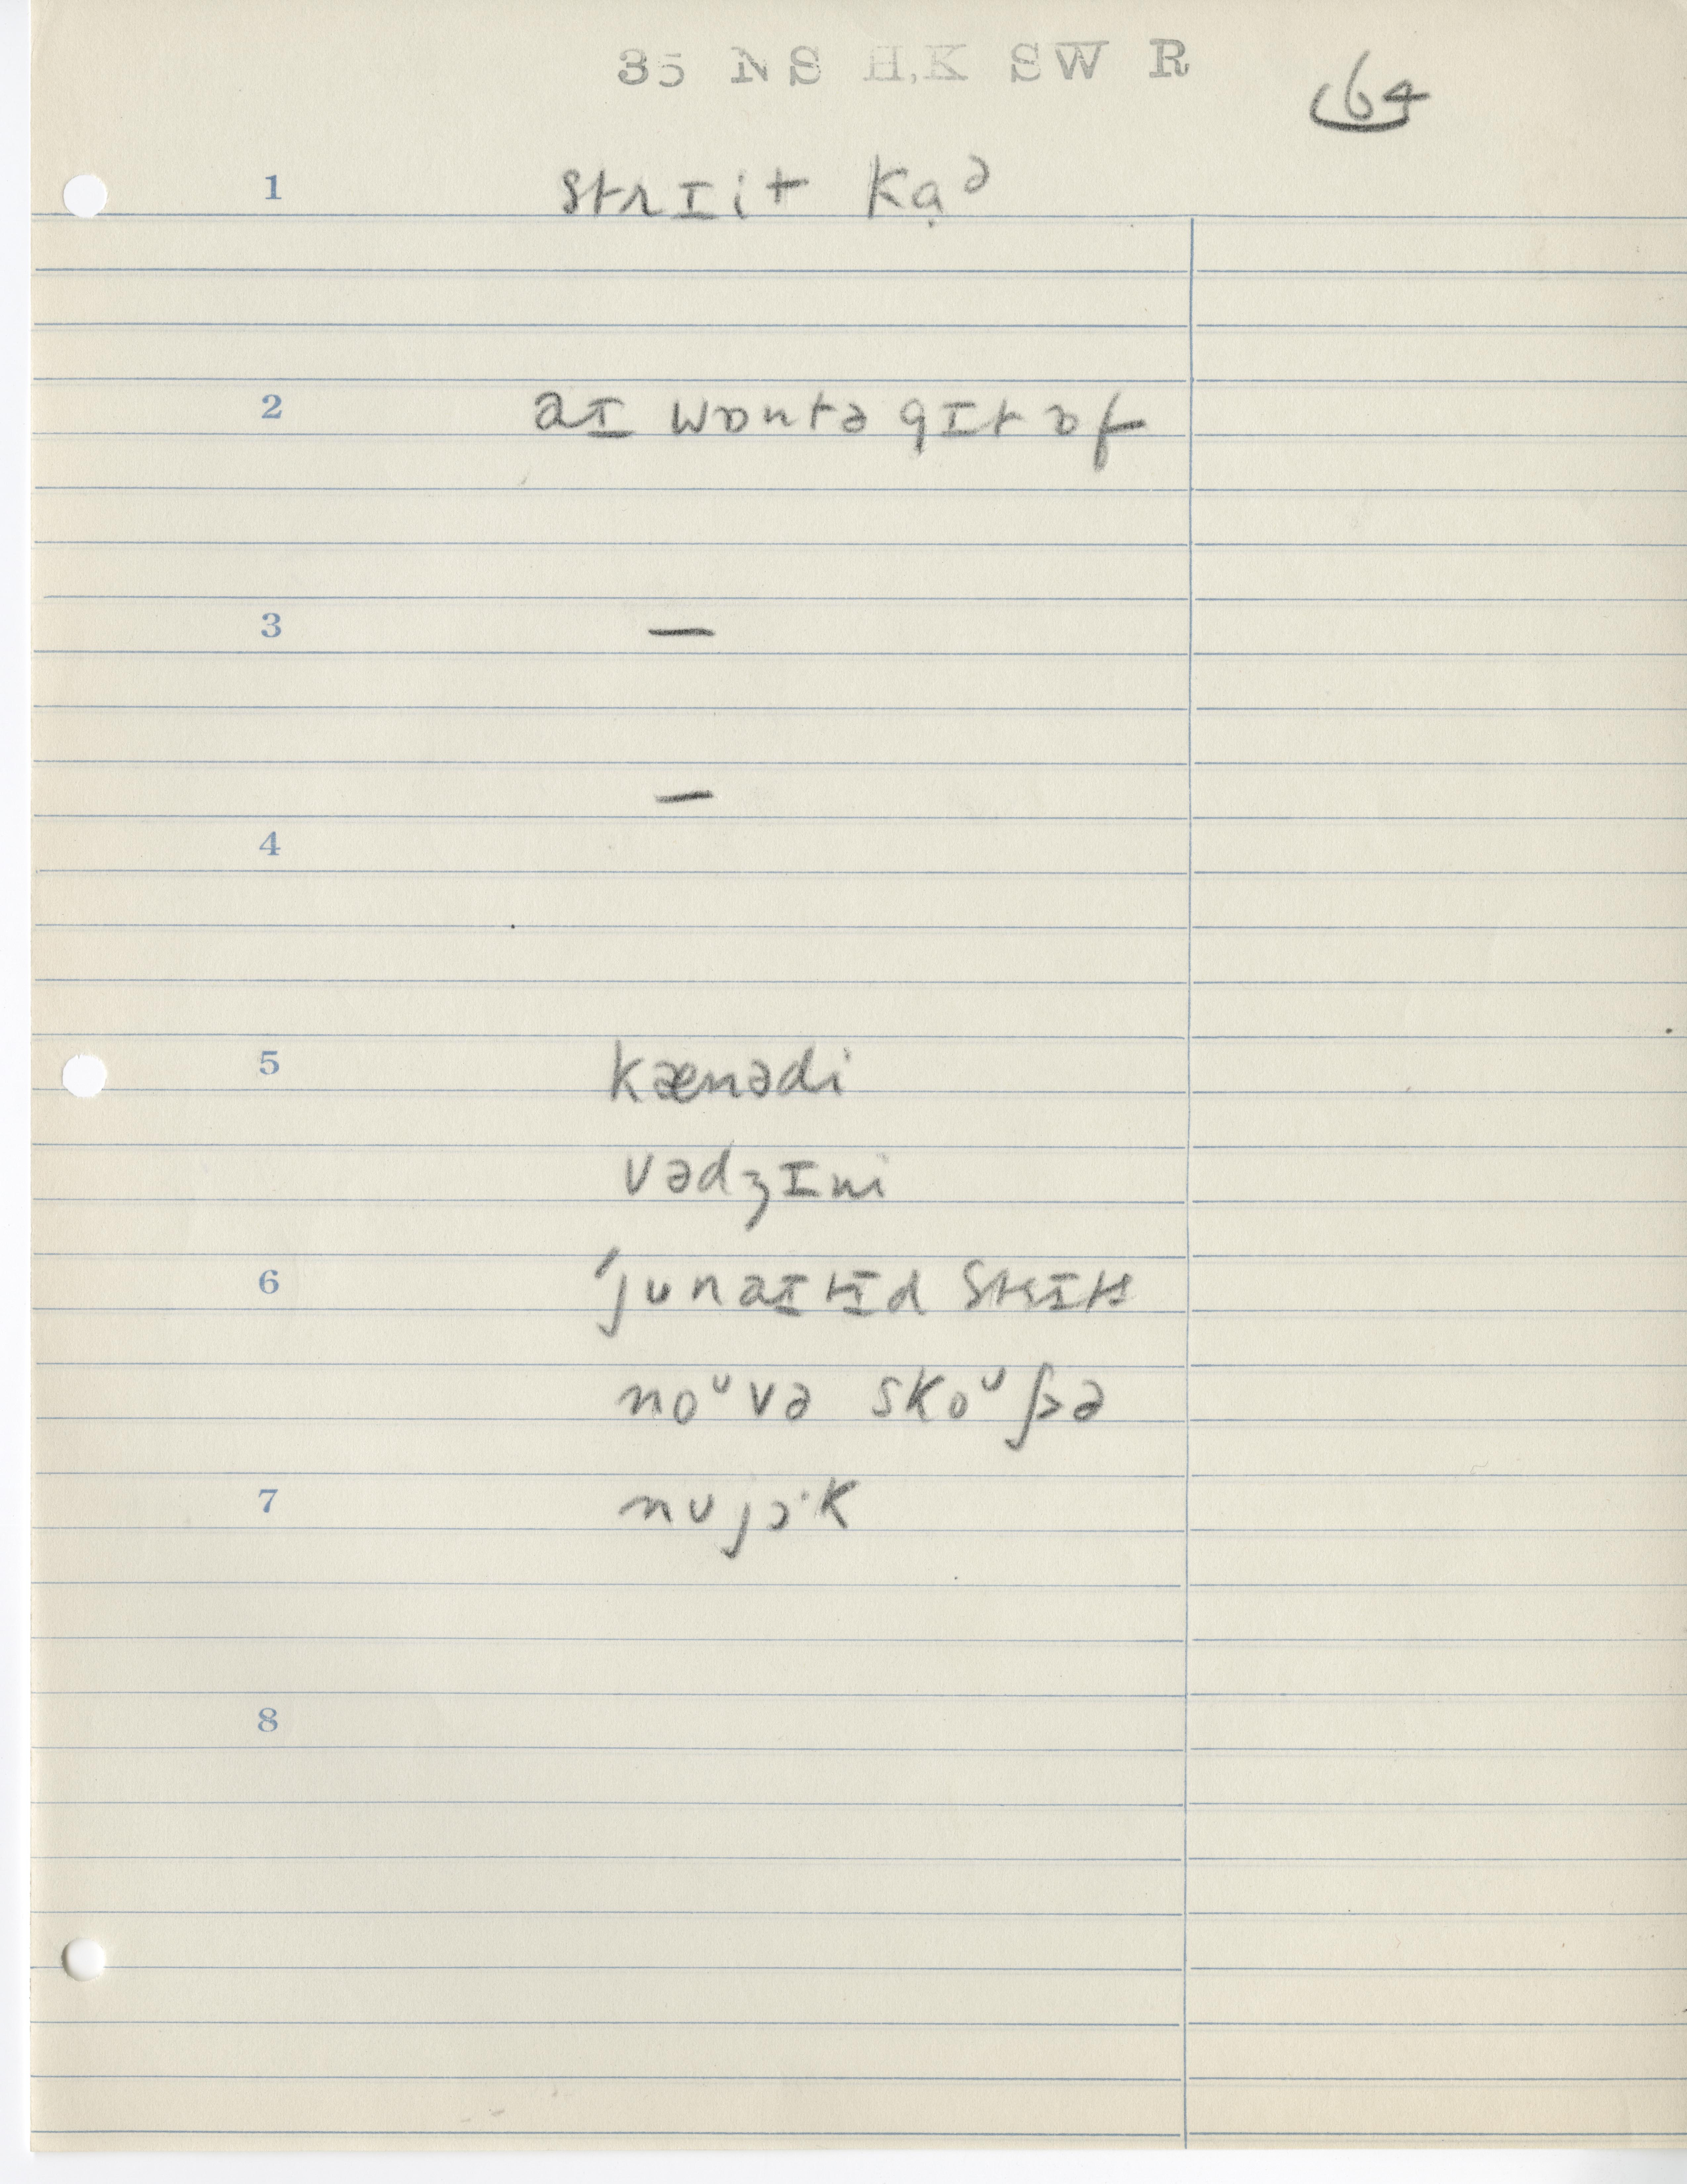 35 N S H.K SW R
64
1 strɪit kɑ̣ᵊ
2 aɪ wɒntə gɪt ɒf
3 —
—
4
5 kænədi
vədʒɪni
6 'junaɪtɪd steɪts
noᵘvə skoᵘʃə
7 nujɔ·k
8